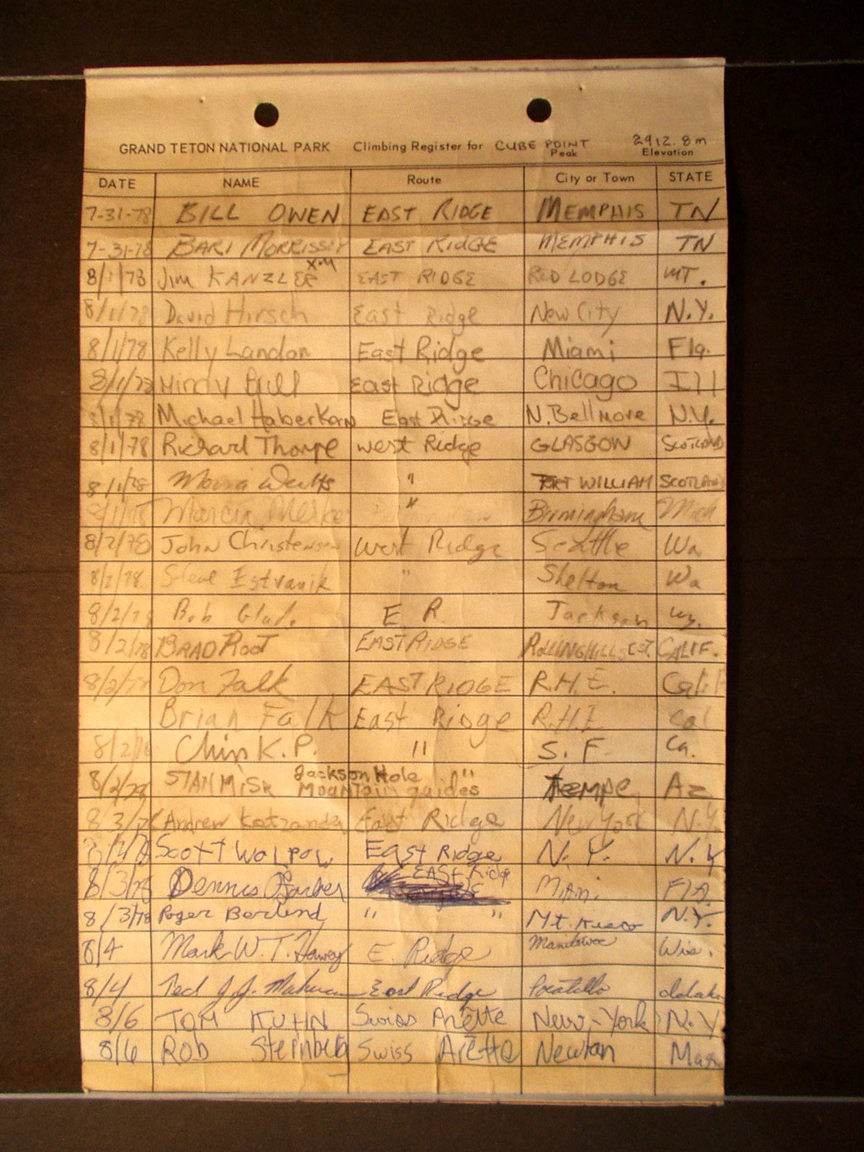 GRAND TETON NATIONAL PARK Climbing Register for CUBE POINT Peak 2912.8m Elevation
DATE NAME Route City or Town STATE
7-31-78 BILL OWEN EAST RIDGE MEMPHIS TN
7-31-78 BARI MORRISSEY EAST RIDGE MEMPHIS TN
8/1/78 JIM KANZLER EAST RIDGE RED LODGE MT.
8/1/78 David Hirsch East Ridge New City N.Y.
8/1/78 Kelly Landon East Ridge Miami Fla.
8/1/78 East Ridge Chicago Ill
8/1/78 Michael Haberkorn East N. Bellmore N.Y.
8/1/78 Richard Thorpe West Ridge GLASGOW SCOTLAND
8/1/78 " WILLIAM SCOTLAND
Marcia " Birmingham Mich
8/2/78 John Christensen West Ridge Seattle Wa
8/2/78 Steve " Shelton Wa
8/2/78 Bob E. R. Jackson Wy.
8/2/78 BRAD ROOT EAST RIDGE ROLLING HILLS EST. CALIF.
8/2/78 Don Falk EAST RIDGE R.H.E. Calif
Brian Falk East Ridge R.H.E. Cal
8/2/78 Chip K. P. " S. F. Ca.
8/2/78 STAN MISH Jackson Hole Mountain guides " Tempe Az
8/3/78 Andrew East Ridge New York N.Y.
Scott Wolpow East Ridge N. Y. N.Y
8/3/78 Dennis Barker EAST Ridge Miami FLA.
8/3/78 Roger Berlind " " Mt. Kisco N.Y.
8/4 Mark W.T. E. Ridge Manitowoc Wis.
8/4 Ted J.J. East Ridge Pocatello Idaho
8/6 TOM KUHN Swiss Arette New-York N.Y
8/6 Rob Steinberg Swiss Arette Newton Mass